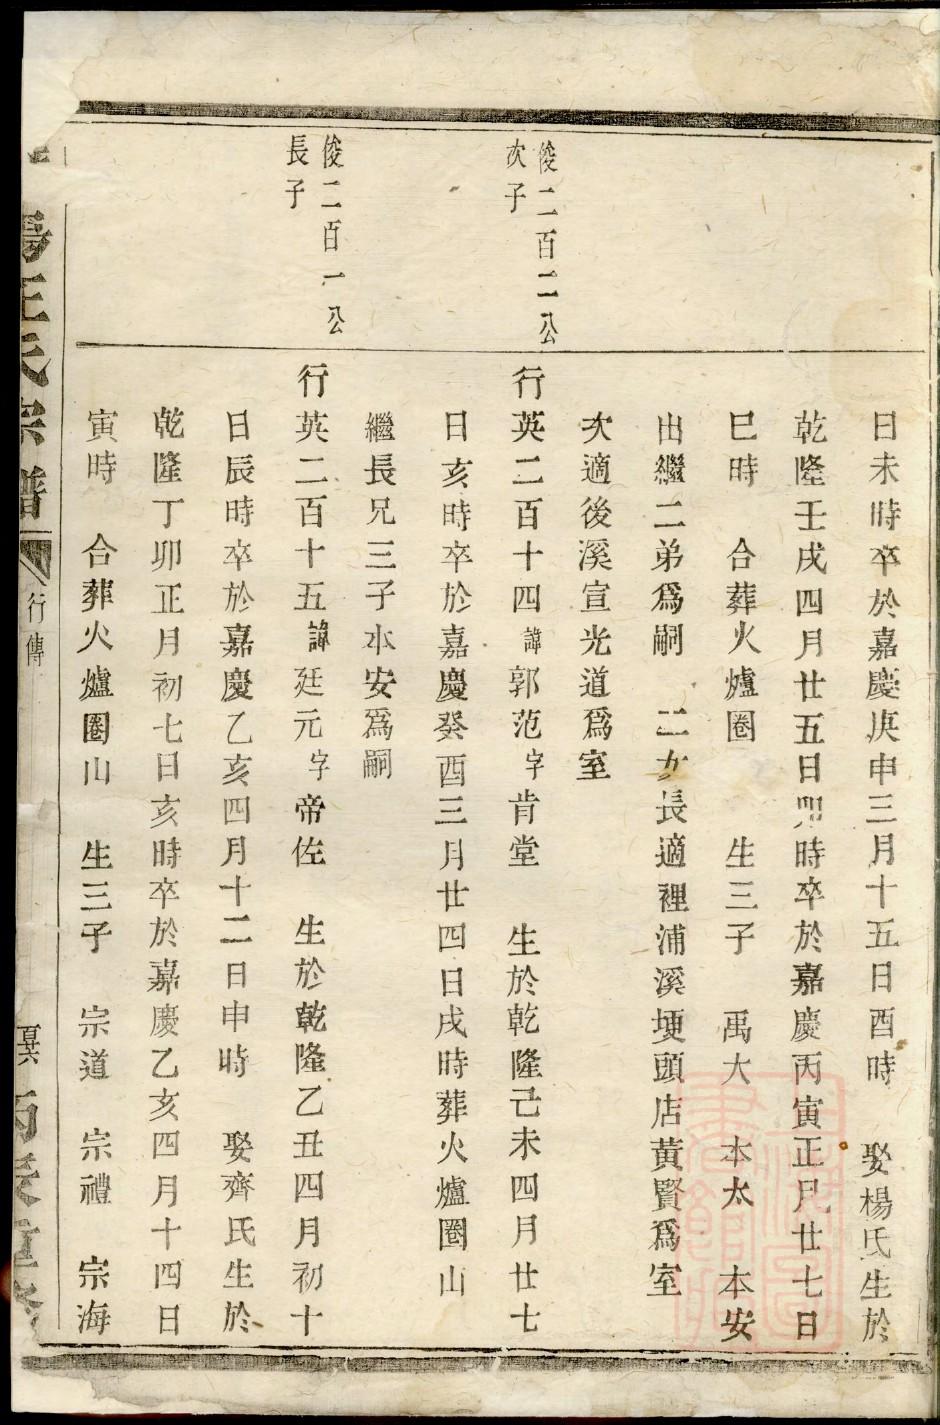 日未時卒於嘉慶庚申三月十五日酉時　娶楊氏生於
乾隆壬戌四月廿五日卯時卒於嘉慶丙寅正月廿七日
巳時　合葬火爐圈　生三子　禹大　本太　本安
出繼二弟爲嗣　二女長適裡浦溪埂頭店黃賢爲室
次適後溪宣光道爲室
俊二百二公
次子
行英二百十四諱郭范字肯堂　生於乾隆己未四月廿七
日亥時卒於嘉慶癸酉三月廿四日戌時葬火爐圈山
繼長兄三子本安爲嗣
俊二百一公
長子
行英二百十五諱廷元字帝佐　生於乾隆乙丑四月初十
日辰時卒於嘉慶乙亥四月十二日申時　娶齊氏生於
乾隆丁卯正月初七日亥時卒於嘉慶乙亥四月十四日
寅時　合葬火爐圈山　生三子　宗道　宗禮　宗海
王氏宗譜
行傳
丙辰重修